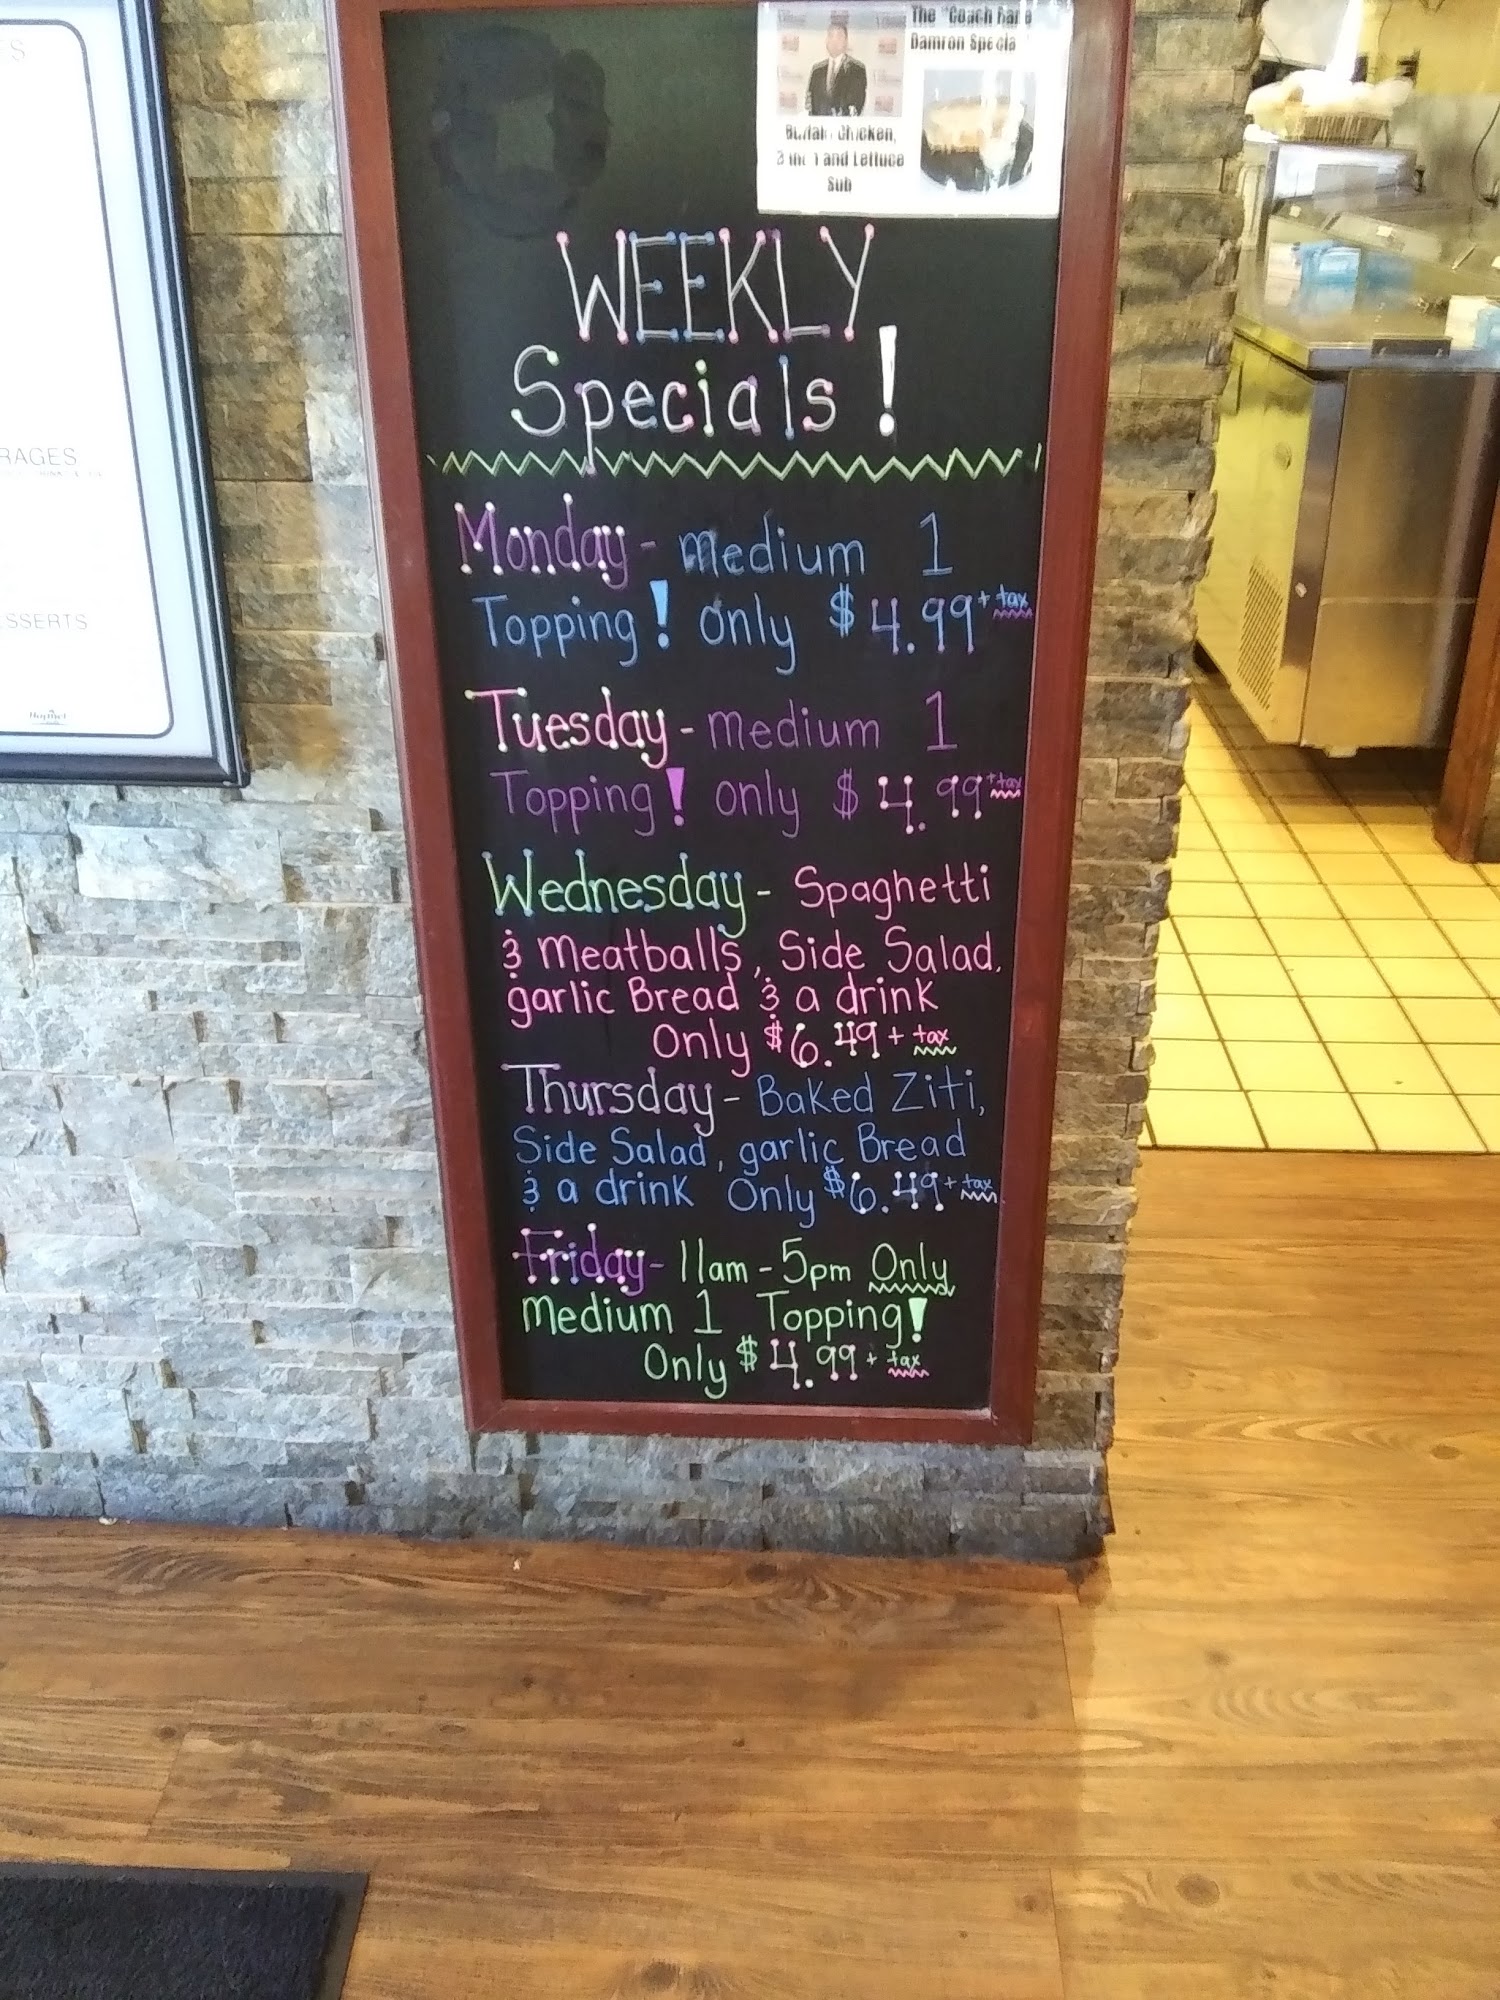 ES
RAGES
SSERTS
The "Coach
Damron Specia
Chicken,
and Lettuce
Sub
WEEKLY
Specials!
Monday - Medium 1
Topping! only $4.99 + tax
Tuesday - Medium 1
Topping! only $4.99 + tax
Wednesday - Spaghetti
& Meatballs, Side Salad,
garlic Bread & a drink
Only $6.49 + tax
Thursday - Baked Ziti,
Side Salad, garlic Bread
& a drink Only $6.49 + tax
Friday - 11am - 5pm Only
Medium 1 Topping!
Only $4.99 + tax